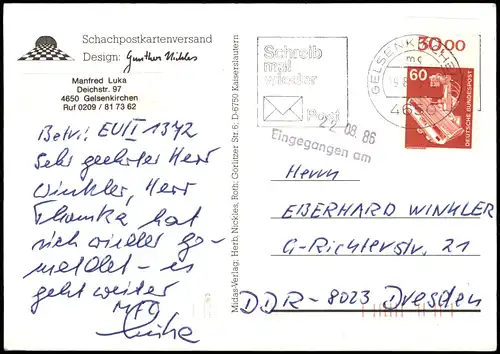 Schachpostkartenversand
Design: Gunther Nickles
Manfred Luka
Deichstr. 97
4650 Gelsenkirchen
Ruf 0209 / 81 73 62
Betr.: EU/I 1372
Sehr geehrter Herr
Winkler, Herr
Thomka hat
sich wieder ge-
meldet - es
geht weiter
MFG
Luka
Midas-Verlag; Herb. Nickles, Roth; Görlitzer Str. 6; D-6750 Kaiserslautern
Schreib
mal
wieder
Post
GELSENKIRCHEN
mc
30.00
60
DEUTSCHE BUNDESPOST
22. 08. 86
Eingegangen am
Herrn
EBERHARD WINKLER
G-Richterstr. 21
DDR - 8023 Dresden